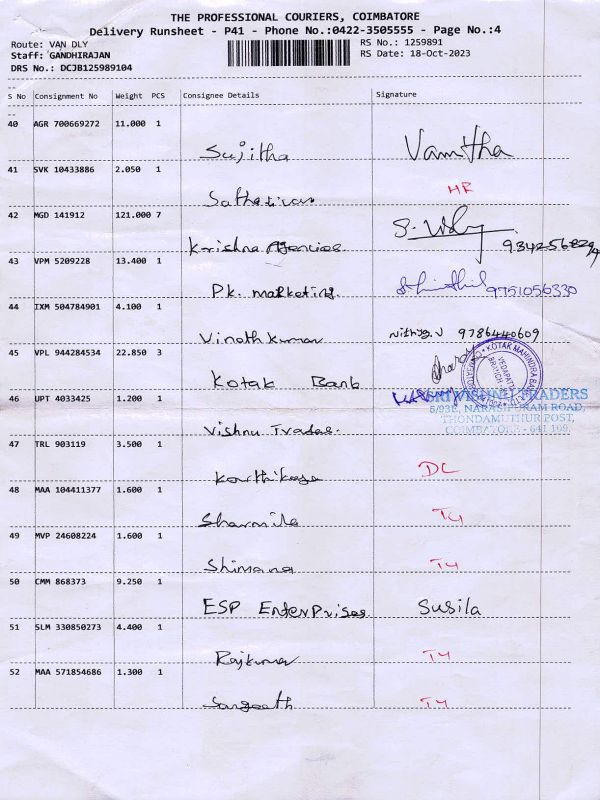 THE PROFESSIONAL COURIERS, COIMBATORE
Delivery Runsheet - P41 - Phone No.:0422-3505555 - Page No.:4
Route: VAN DLY
Staff: GANDHIRAJAN
DRS No.: DCJB125989104
RS No.: 1259891
RS Date: 18-Oct-2023
S No Consignment No Weight PCS Consignee Details Signature
40 AGR 700669272 11.000 1
Sujitha Vanitha
41 SVK 10433886 2.050 1
HR
42 MGD 141912 121.000 7
Krishna Agencies
43 VPM 5209228 13.400 1
P.K. marketing. 9751056330
44 IXM 504784901 4.100 1
Vinothkumar Nithya.V 9786440609
45 VPL 944284534 22.850 3
Kotak Bank
KOTAK MAHINDRA BANK
BRANCH
46 UPT 4033425 1.200 1
SRI VISHNU TRADERS
5/93E, NARASIPURAM ROAD,
THONDAMUTHUR POST,
COIMBATORE - 641 109.
Vishnu Trades.
47 TRL 903119 3.500 1
DL
48 MAA 104411377 1.600 1
Sharmila
49 MVP 24608224 1.600 1
50 CMM 868373 9.250 1
ESP EnterPrises Susila
51 SLM 330850273 4.400 1
Rajkumar
52 MAA 571854686 1.300 1
Sangeeth